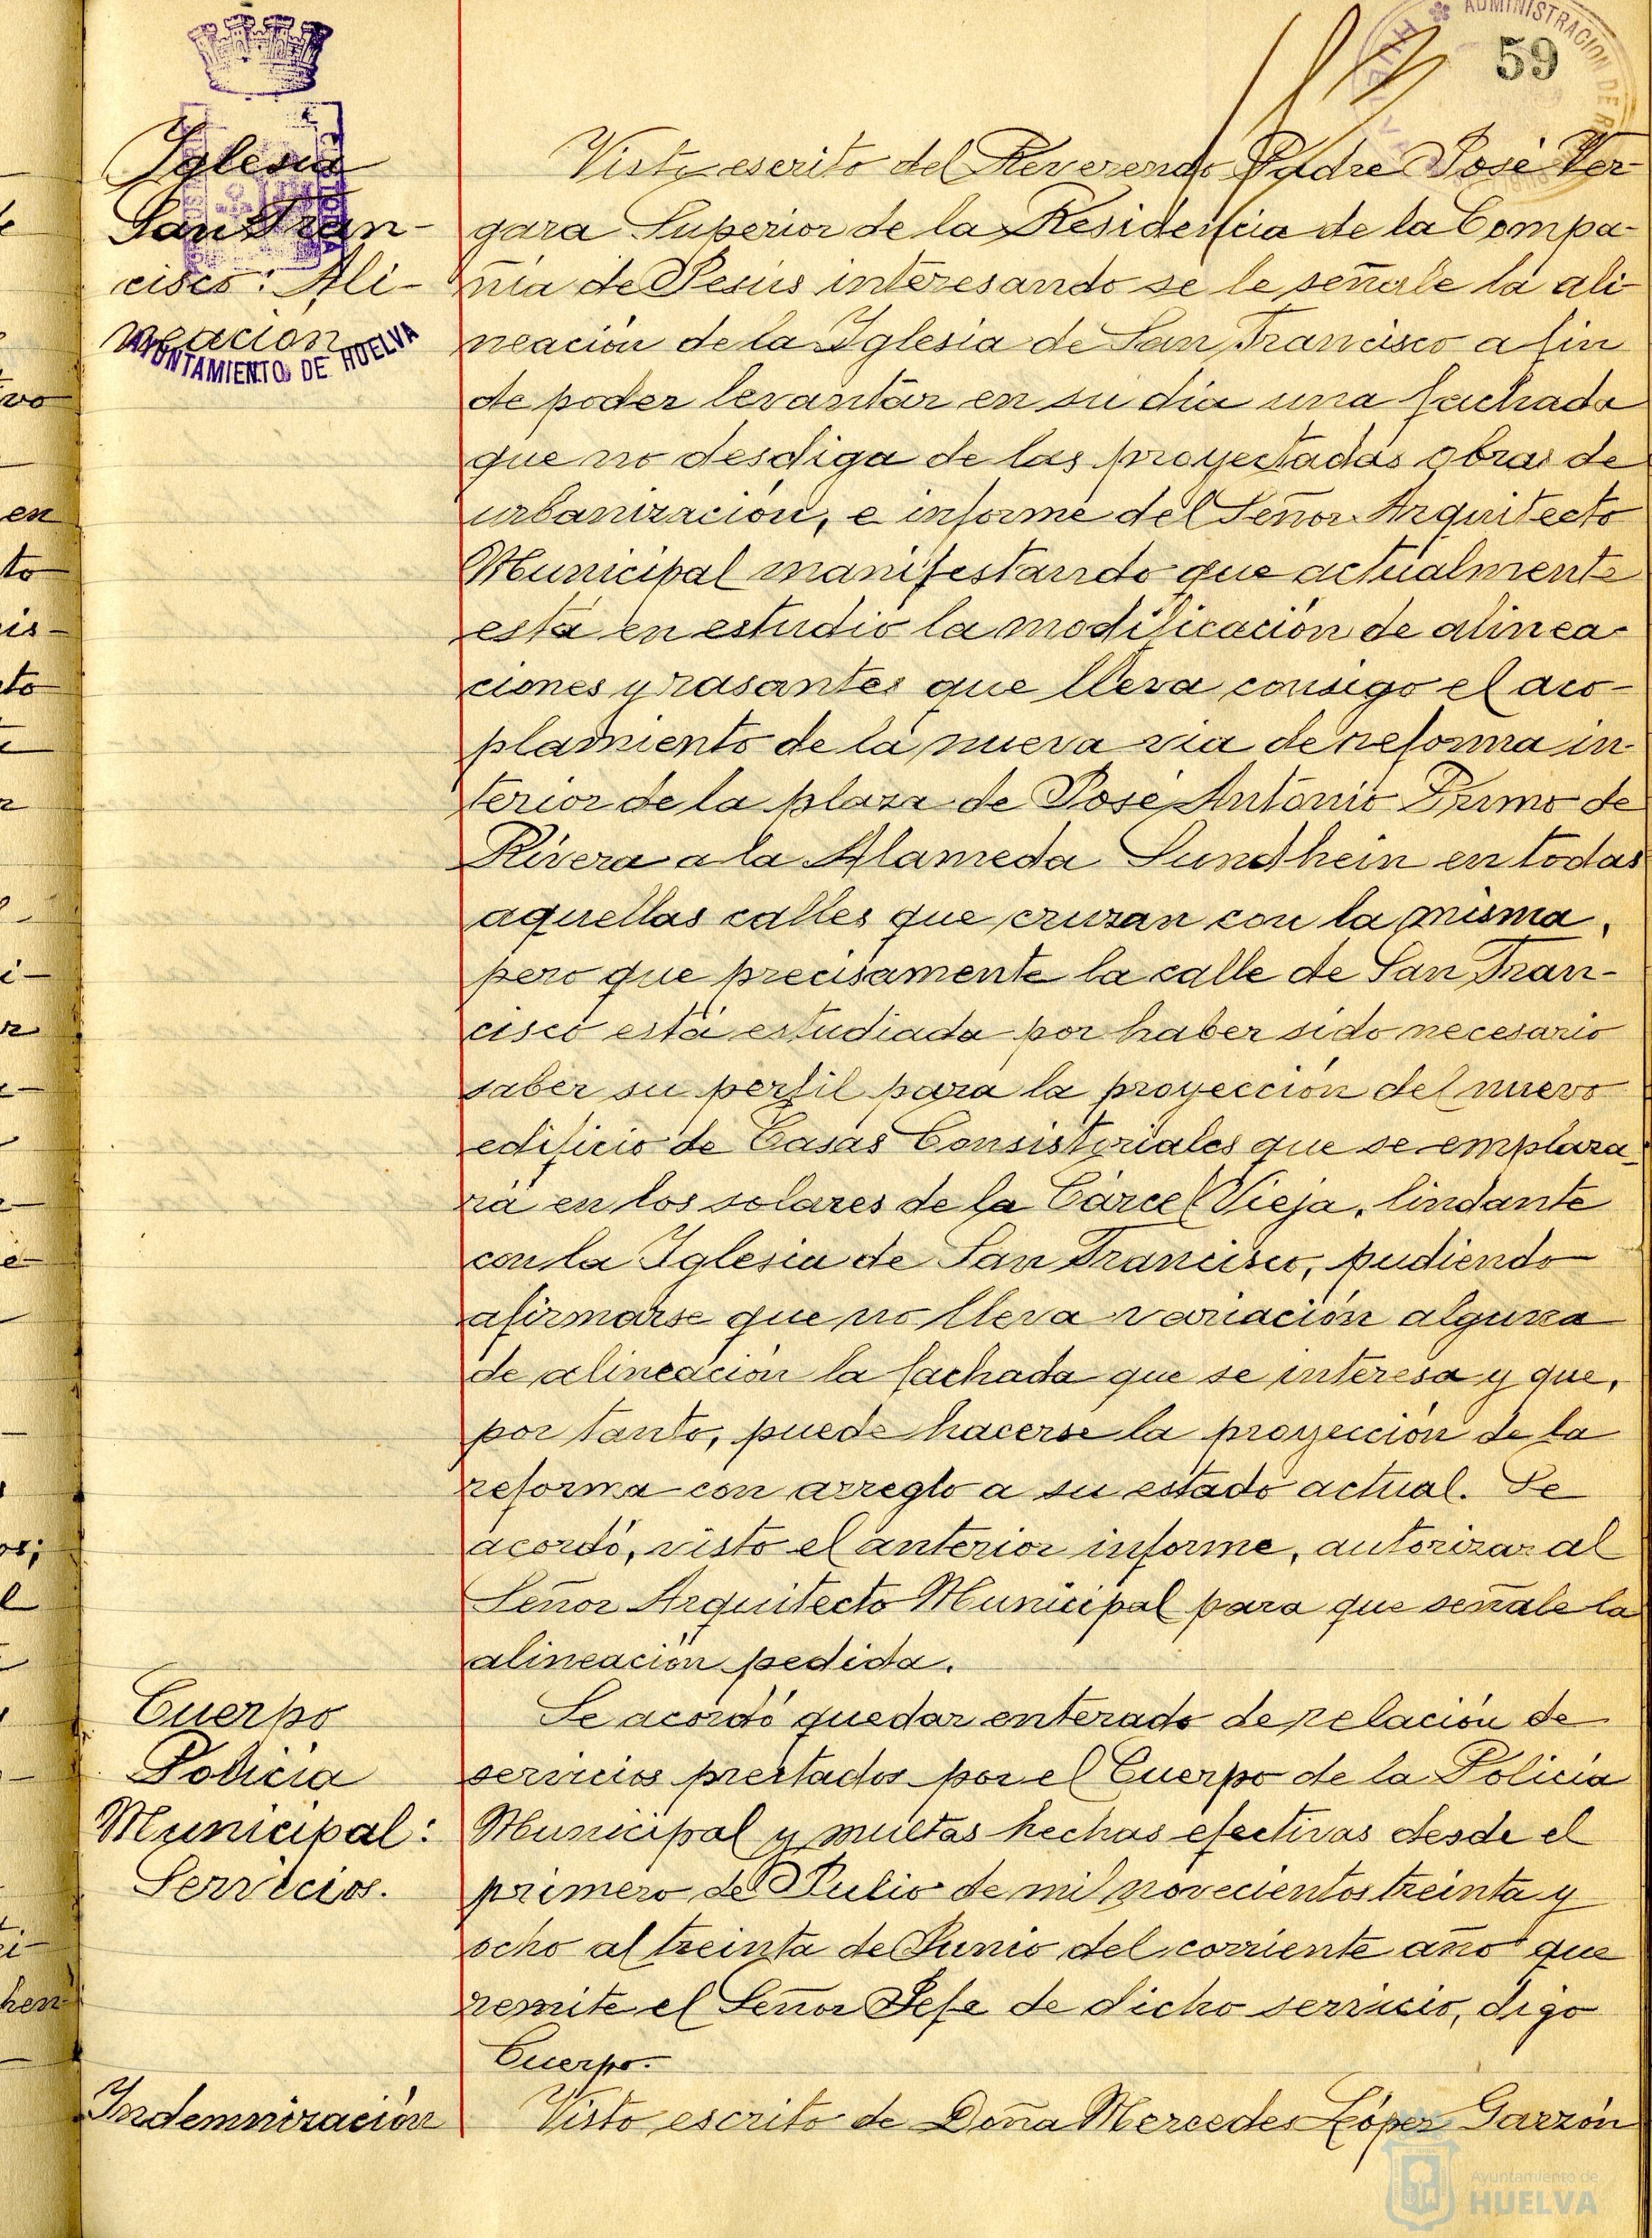 59
ADMINISTRACION DE
Iglesia
San Fran-
cisco: Ali-
neacion
AYUNTAMIENTO DE HUELVA
Visto escrito del Reverendo Padre José Ver-
gara Superior de la Residencia de la Compa-
ñía de Jesús interesando se le señale la ali-
neación de la Iglesia de San Francisco a fin
de poder levantar en su día una fachada
que no desdiga de las proyectadas obras de
urbanización, e informe del Señor Arquitecto
Municipal manifestando que actualmente
está en estudio la modificación de alinea-
ciones y rasantes que lleva consigo el aco-
plamiento de la nueva via de reforma in-
terior de la plaza de José Antonio Primo de
Rivera a la Alameda Sundhein en todas
aquellas calles que cruzan con la misma,
pero que precisamente la calle de San Fran-
cisco está estudiada por haber sido necesario
saber su perfil para la proyección del nuevo
edificio de Casas Consistoriales que se emplaza-
rá en los solares de la Cárcel Vieja, lindante
con la Iglesia de San Francisco, pudiendo
afirmarse que no lleva variación alguna
de alineación la fachada que se interesa y que,
por tanto, puede hacerse la proyección de la
reforma con arreglo a su estado actual. Se
acordó, visto el anterior informe, autorizar al
Señor Arquitecto Municipal para que señale la
alineación pedida.
Cuerpo
Policia
Municipal:
Servicios.
Se acordó quedar enterado de relación de
servicios prestados por el Cuerpo de la Policía
Municipal y multas hechas efectivas desde el
primero de Julio de mil novecientos treinta y
ocho al treinta de Junio del corriente año que
remite el Señor Jefe de dicho servicio, digo
Cuerpo.
Indemnización
Visto escrito de Doña Mercedes López Garzón
Ayuntamiento de
HUELVA